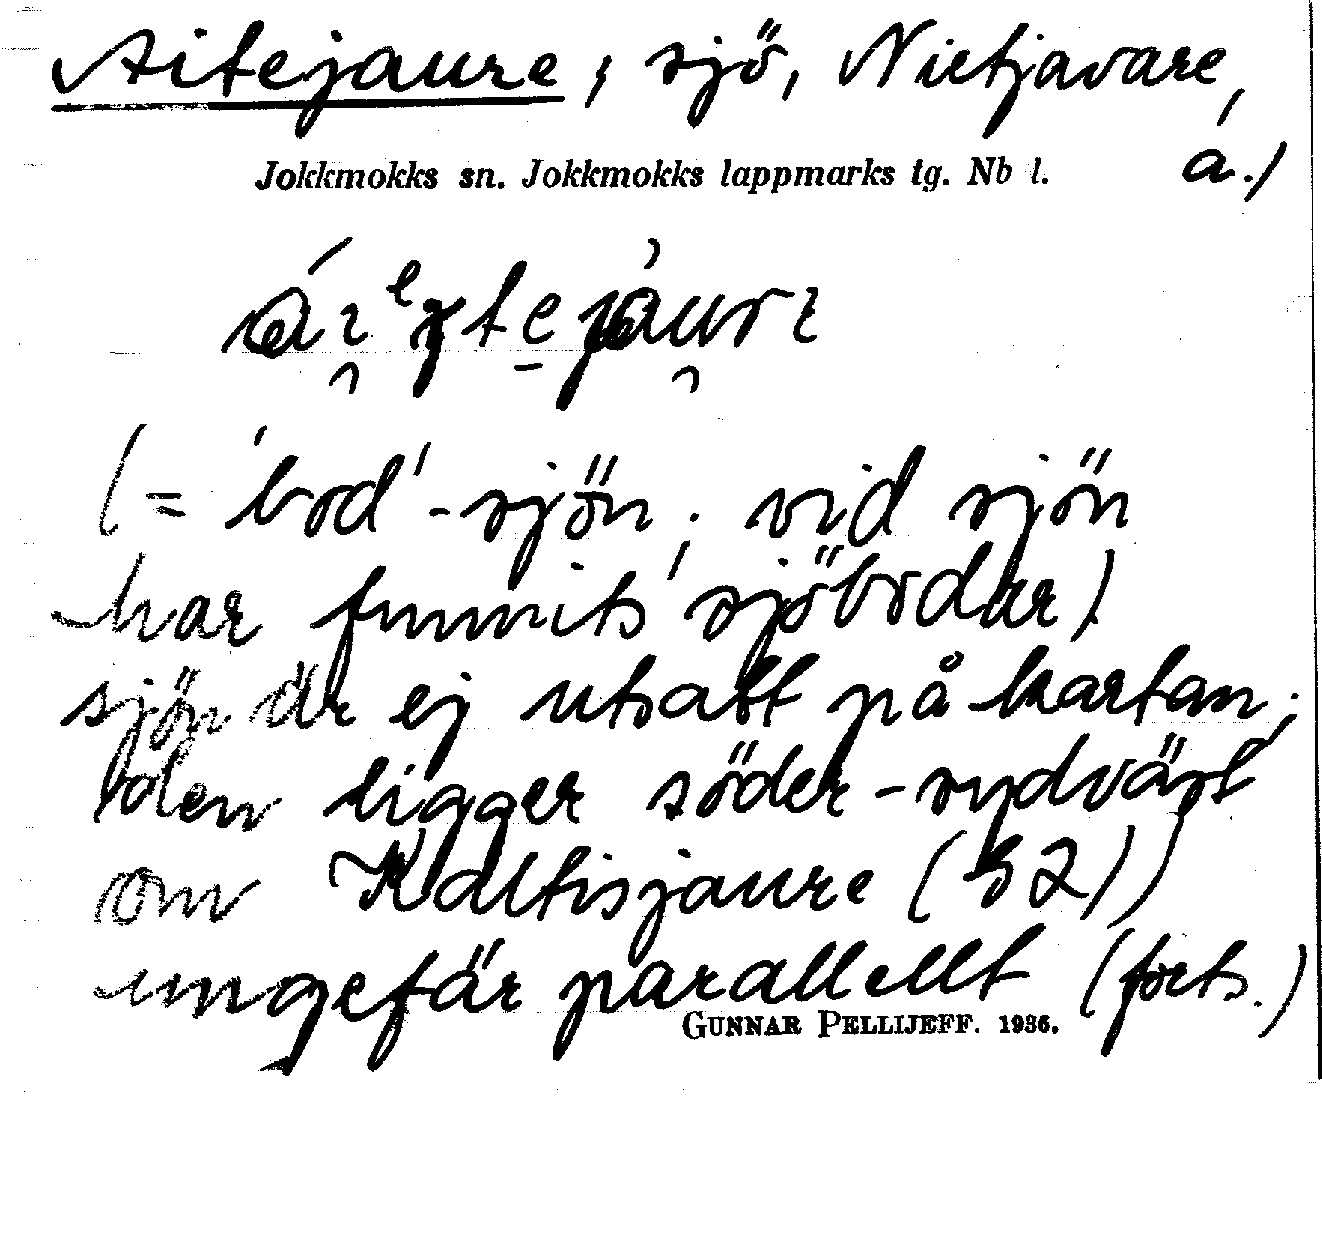 Aitejaure, sjö, Nietjavare,
Jokkmokks sn. Jokkmokks lappmarks tg. Nb l. á.)
(= 'bod'-sjön; vid sjön
har funnits sjöbodar)
sjön är ej utsatt på kartan;
den ligger söder-sydväst
om Kaltisjaure (52))
ungefär parallellt (forts.)
GUNNAR PELLIJEFF. 1936.